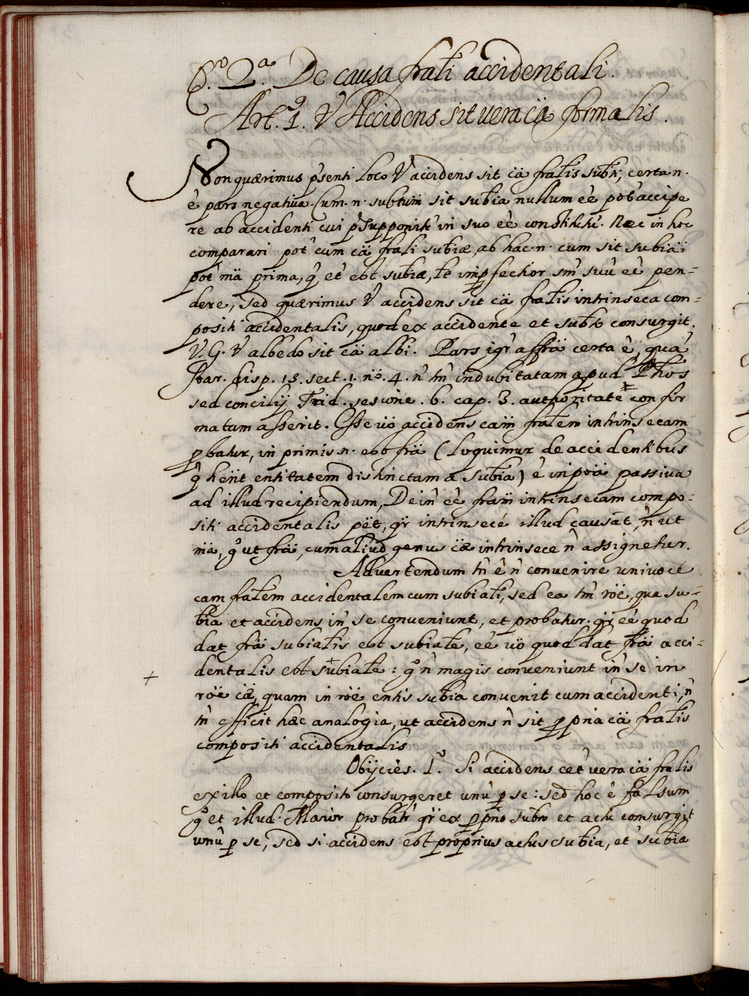 §.º 2.ª De causa frãli accidentali.
Art.º 1. V̓ Accidens sit vera cã formalis.
Non quærimus p̃senti loco V̓ accidens sit cã frãlis subti; certa n.
ẽ pars negativa. Cum n. subtum sit subia nullum eẽ pot̓ accipe
re ab accidenti cui p̃supponit̓ in suo eẽ constituti. Nec in hoc
comparari pot̓ cum cã frãli subiæ, ab hac n. cum sit subiã
pot̓ mã prima, q̃ et̓ est subiæ, te impfectior sm̓ suũ eẽ pen=
dere, sed quærimus V̓ accidens sit cã frãlis intrinseca com=
positi accidentalis, quod ex accidente et subto consurgit.
V.G. V̓ albedo sit cã albi. Pars igr̓ affrã certa ẽ, quã
Soar. disp. 15. sect. 1. nº. 4. n̓ tm̓ indubitatam apud Phos
sed concilij Trid. sesione. 6. cap. 3. authoritatẽ confir
matam asserit. Esse ũo accidens cam̃ frãlem intrinsecam
p̱batur, in primis n. est frã (loquimur de accidentibus
q̃ hẽnt entitatem distinctam a subia) ẽ in pọã passiva
ad illud recipiendum, Dein̓ eẽ frãm intrinsecam compo=
siti accidentalis pẽt, qr̓ intrinsece illud causat, n̓ ut
mã, gº ut frã, cum aliud genus cæ intrinsece n̓ assignetur.
Advertendum tn̓ ẽ n̓ convenire univoce
cam frãlem accidentalem cum subiali, sed ea tm̓ roẽ, qua su=
bia et accidens in̓ se conveniunt, et probatur. qr̓ eẽ quod
dat frã subialis est subiale, eẽ ũo quod dat frã acci=
dentalis est subiale: gº n̓ magis conveniunt in̓ se in
+ roẽ cæ, quam in roẽ entis subia convenit cum accidenti, n̓
tn̓ efficit hæc analogia, ut accidens n̓ sit p̱pria cã frãlis
compositi accidentalis.
Obijcies. 1.º Si accidens eẽt vera cã frãlis
ex illo et composito consurgeret unũ p̱ se: sed hoc ẽ falsum
gº et illud. Maior probat̓ qr̓ ex p̱prio subto et actu consurgit
unũ p̱ se; sed si accidens est proprius actus subia, et̓ subia